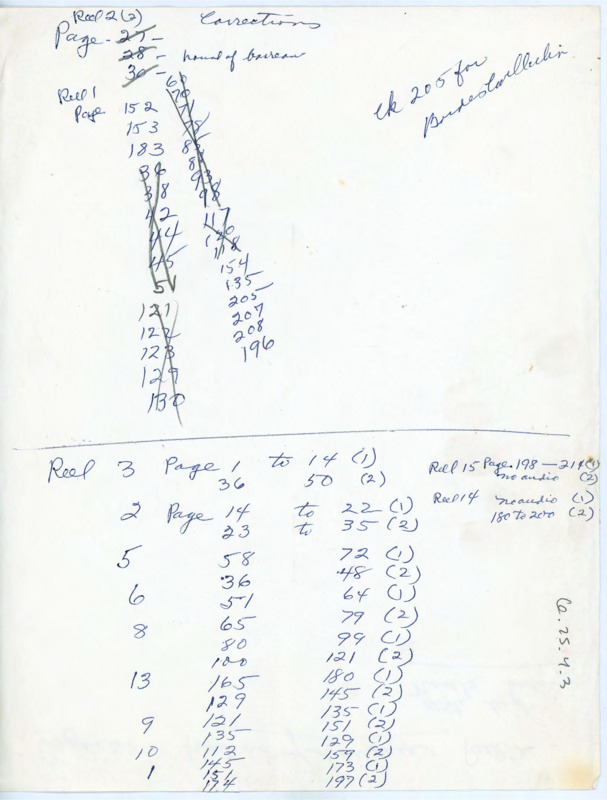 Reel 2 (2) Corrections
Page - 27 -
28 - of
30 -
Reel 1
Page 152
153
183
36
38
42
44
45
51
121
122
123
129
130
60
70
71
78
93
98
117
120
118
154
135
205
207
208
196
ck 205 for
Reel 3 Page 1 to 14 (1)
36 50 (2)
2 Page 14 to 22 (1)
23 to 35 (2)
5 58 72 (1)
36 48 (2)
6 51 64 (1)
65 79 (2)
8 80 99 (1)
100 121 (2)
13 165 180 (1)
129 145 (2)
9 121 135 (1)
135 151 (2)
10 112 129 (1)
145 159 (2)
1 151 173 (1)
174 197 (2)
Reel 15 Page 198 - 214 (1)
no audio (2)
Reel 14 no audio (1)
180 to 200 (2)
62.25.4.3